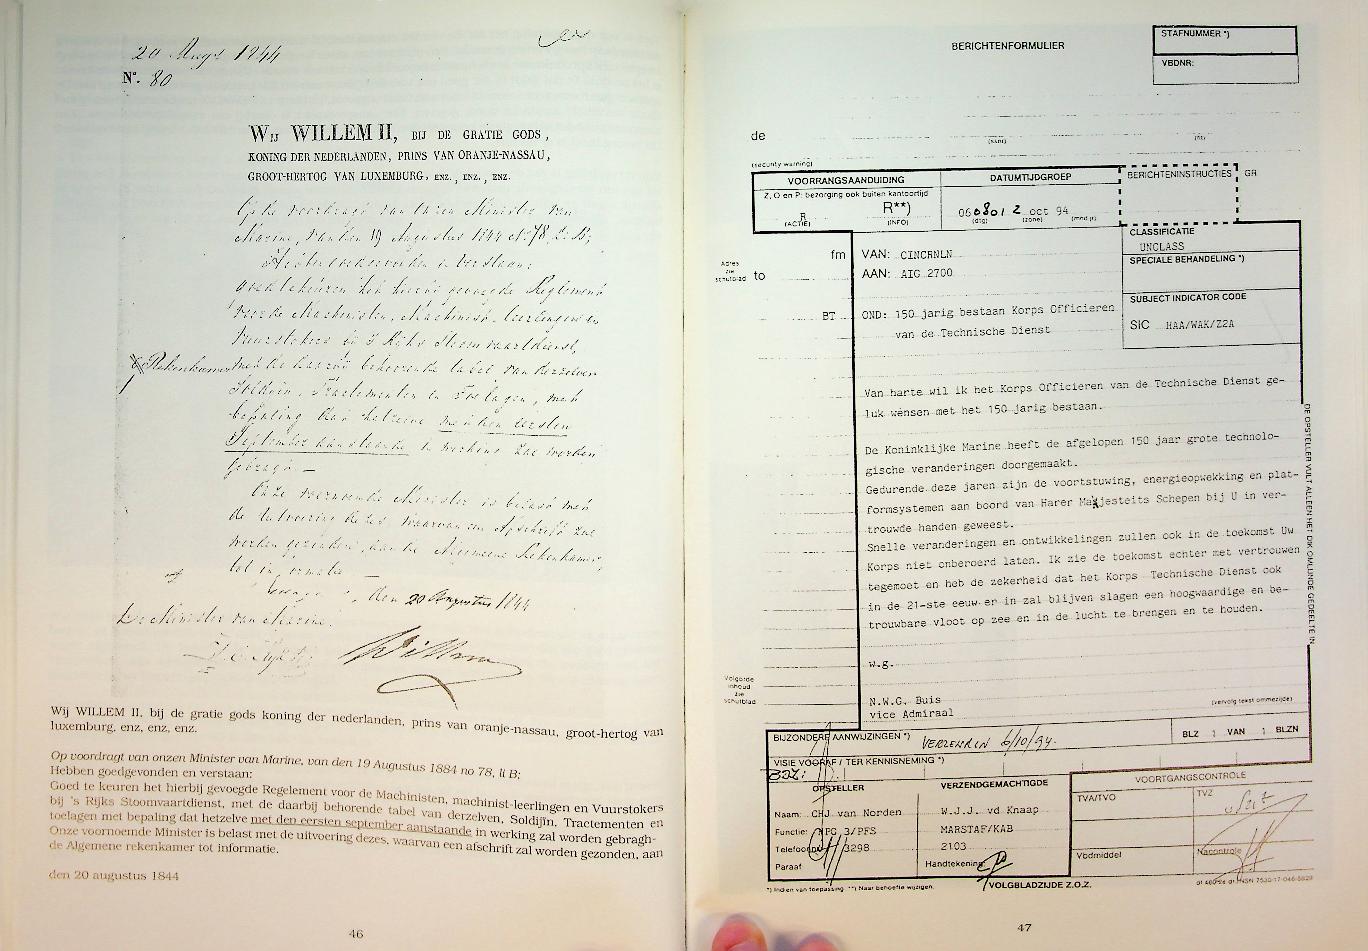 20 Augs 1844
N°. 80
Wij WILLEM II, BIJ DE GRATIE GODS,
KONING DER NEDERLANDEN, PRINS VAN ORANJE-NASSAU,
GROOT-HERTOG VAN LUXEMBURG, ENZ., ENZ., ENZ.
Op de voordragt van Onzen Minister van
Marine, van den 19 Augustus 1844 No. 78, L. B;
Hebben goedgevonden en verstaan:
goed te keuren het hierbij gevoegde Reglement
voor de Machinisten, Machinist-leerlingen en
Vuurstokers bij 's Rijks Stoomvaartdienst,
Rekenkamer
met de daarbij behoorende tabel van derzelver
Soldijen, Tractementen en Toelagen, met
bepaling dat hetzelve met den eersten
September aanstaande in werking zal worden
gebragt —
Onze voornoemde Minister is belast met
de uitvoering dezes, waarvan een Afschrift zal
worden gezonden, aan de Algemeene Rekenkamer,
tot informatie —
den 20 Augustus 1844
De Minister van Marine.
Willem
Wij WILLEM II, bij de gratie gods koning der nederlanden, prins van oranje-nassau, groot-hertog van
luxemburg, enz, enz, enz.
Op voordragt van onzen Minister van Marine, van den 19 Augustus 1884 no 78, lt B;
Hebben goedgevonden en verstaan:
Goed te keuren het hierbij gevoegde Regelement voor de Machinisten, machinist-leerlingen en Vuurstokers
bij 's Rijks Stoomvaartdienst, met de daarbij behorende tabel van derzelven, Soldijïn, Tractementen en
toelagen met bepaling dat hetzelve met den eersten september aanstaande in werking zal worden gebragh-
Onze voornoemde Minister is belast met de uitvoering dezes, waarvan een afschrift zal worden gezonden, aan
de Algemene rekenkamer tot informatie.
den 20 augustus 1844
46
BERICHTENFORMULIER
STAFNUMMER *)
VBDNR:
de
(security warning)
VOORRANGSAANDUIDING
DATUMTIJDGROEP
BERICHTENINSTRUCTIES
GR
Z, O en P: bezorging ook buiten kantoortijd
R
R**)
060801 Z oct 94
(ACTIE)
(INFO)
(dtg)
(zone)
(mnd jr)
CLASSIFICATIE
UNCLASS
fm
VAN: CINCRNLN
SPECIALE BEHANDELING *)
Adres
zie
schutblad
to
AAN: AIG 2700
SUBJECT INDICATOR CODE
BT
OND: 150 jarig bestaan Korps Officieren
SIC HAA/WAK/Z2A
van de Technische Dienst
Van harte wil ik het Korps Officieren van de Technische Dienst ge-
luk wensen met het 150 jarig bestaan.
De Koninklijke Marine heeft de afgelopen 150 jaar grote technolo-
gische veranderingen doorgemaakt.
Gedurende deze jaren zijn de voortstuwing, energieopwekking en plat-
formsystemen aan boord van Harer Majesteits Schepen bij U in ver-
trouwde handen geweest.
Snelle veranderingen en ontwikkelingen zullen ook in de toekomst Uw
Korps niet onberoerd laten. Ik zie de toekomst echter met vertrouwen
tegemoet en heb de zekerheid dat het Korps Technische Dienst ook
in de 21-ste eeuw er in zal blijven slagen een hoogwaardige en be-
trouwbare vloot op zee en in de lucht te brengen en te houden.
DE OPSTELLER VULT ALLEEN HET DIK OMLIJNDE GEDEELTE IN
w.g.
Volgorde
inhoud
zie
schutblad
N.W.G. Buis
vice Admiraal
(vervolg tekst ommezijde)
BIJZONDERE AANWIJZINGEN *)
VERZENDEN 6/10/94.
BLZ 1 VAN 1 BLZN
VISIE VOORAF / TER KENNISNEMING *)
OPSTELLER
VERZENDGEMACHTIGDE
VOORTGANGSCONTROLE
Naam: CHJ van Norden
W.J.J. vd Knaap
TVA/TVO
TVZ
Functie: PFC 3/PFS
MARSTAF/KAB
Telefoonnr 3298
2103
Vbdmiddel
Nacontrole
Paraaf
Handtekening:
*) Indien van toepassing **) Naar behoefte wijzigen.
VOLGBLADZIJDE Z.O.Z.
47